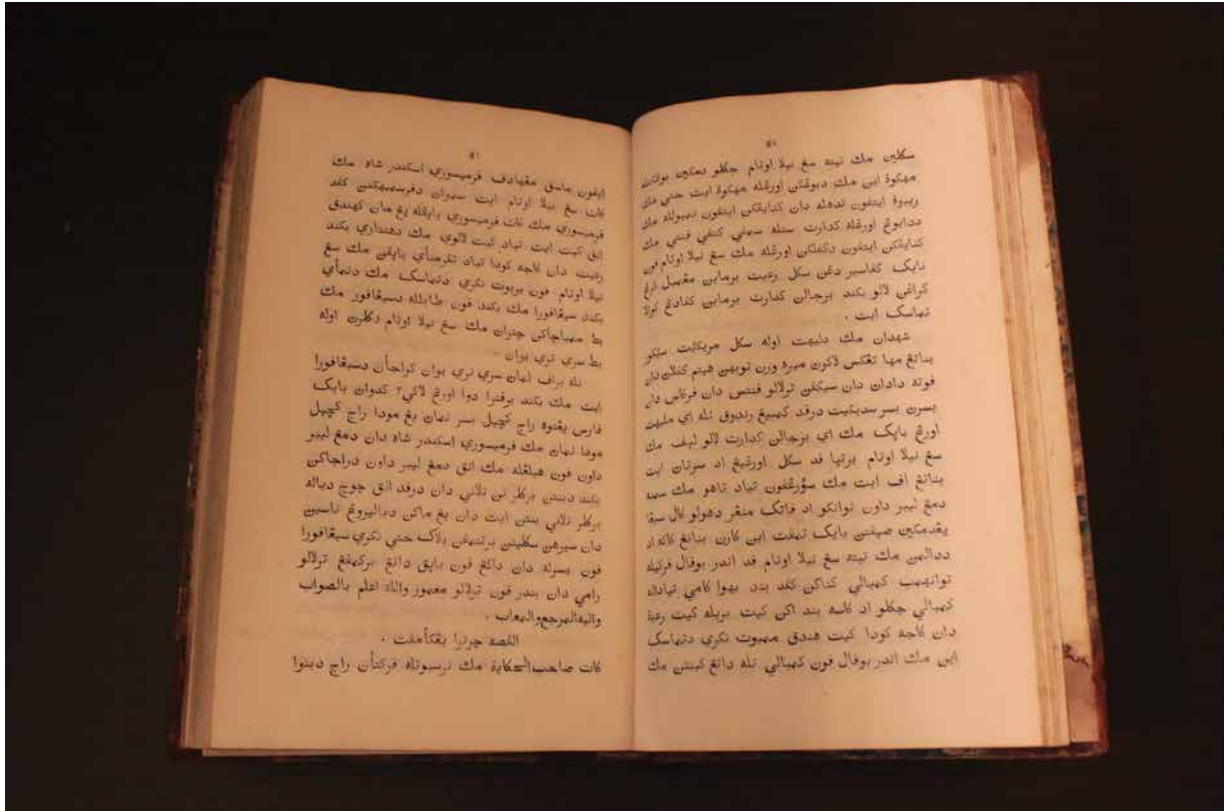 ٤٠
سكلين مك تيته سڠ نيلا اوتام جكلو دمكين بوڠله
مهكوة اين مك دبوڠكن اورڠله مهكوة ايت حتي مك
ريبوة ايتفون تدهله دان كنايقكن ايتفون تمبولله مك
ددايوڠ اورڠله كدارت ستله سمڤي كتڤي ڤنتي مك
كنايقكن ايتفون دكفلكن اورڠله مك سڠ نيلا اوتام فون
نايك كڤاسير دڠن سكل رعيت برماين مڠمبيل كرڠ
كراڠن لالو بڬند برجالن كدارت برماين كفادڠ كوالا
تماسك ايت ٠
شهدان مك دليهت اوله سكل مريكئت سيكور
بناتڠ مها تڠكس لاكون ميره ورن توبهن هيتم كفلان دان
فوته دادان دان سيكفن ترلالو فنتس دان فركاس دان
بسرن بسر سديكيت درفد كمبيڠ رندوق تله اي مليهت
اورڠ بايك مك اي برجالن كدارت لالو ليڤ مك
سڠ نيلا اوتام برتيا فد سكل اورڠيڠ اد سرتان ايت
بناتڠ اف ايت مك سؤرڠفون تياد تاهو مك سمبه
دمڠ ليبر داون توانكو اد فاتك منڠر دهولو كال سيڠا
يڠدمكين صيفتن بايك تمفت اين كارن بناتڠ ڬاڬه اد
ددالمن مك تيته سڠ نيلا اوتام فد اندر بوفال فرڬيله
توانهمب كمبالي كتاكن كفد بند بهوا كامي تياداله
كمبالي جكلو اد كاسه بند اكن كيت بريله كيت رعية
دان ڬاجه كودا كيت هندق ممبوت نكري دتماسك
اين مك اندر بوفال فون كمبالي تله داتڠ كبنتن مك
٤١
ايفون ماسق مڠهادف فرميسوري اسكندر شاه مك
كات سڠ نيلا اوتام ايت سموان دفرسمبهكن كفد
فرميسوري مك كات فرميسوري بايقله يڠ مان كهندق
انق كيت ايت تياد كيت لالوي مك دهنتاري بڬند
رعيت دان ڬاجه كودا تياد تفرمناي باپقن مك سڠ
نيلا اوتام فون بربوت نكري دتماسك مك دنماي
بڬند سيڠافورا مك بڬند فون طابلله دسيڠافور مك
بط ممباچاكن چتران مك سڠ نيلا اوتام دڬلرن اوله
بط سري تري بوان ٠
تله براف لمان سري تري بوان كراجأن دسيڠافورا
ايت مك بڬند برفترا دوا اورڠ لاكي٢ كدوان بايك
فارس يڠتوه راج كچيل بسر نمان يڠ مودا راج كچيل
مودا نمان مك فرميسوري اسكندر شاه دان دمڠ ليبر
داون فون هيلڠله مك انق دمڠ ليبر داون دراجاكن
بڬند دبنتن برڬلر تن تلاني دان درفد انق چوچ دياله
برڬلر تلاني بنتن ايت دان يڠ ماكن دباليروڠ ناسين
دان سيرهن سكلين برتتمفن بلاك حتي نكري سيڠافورا
فون بسرله دان داڬڠ فون باپق داتڠ بركمفڠ ترلالو
رامي دان بندر فون ترلالو معمور والله اعلم بالصواب
واليه المرجع والمعاب ٠
القصه چرترا يڠكأمفت ٠
كات صاحب الحكاية مك ترسبوتله فركتأن راج دبنوا